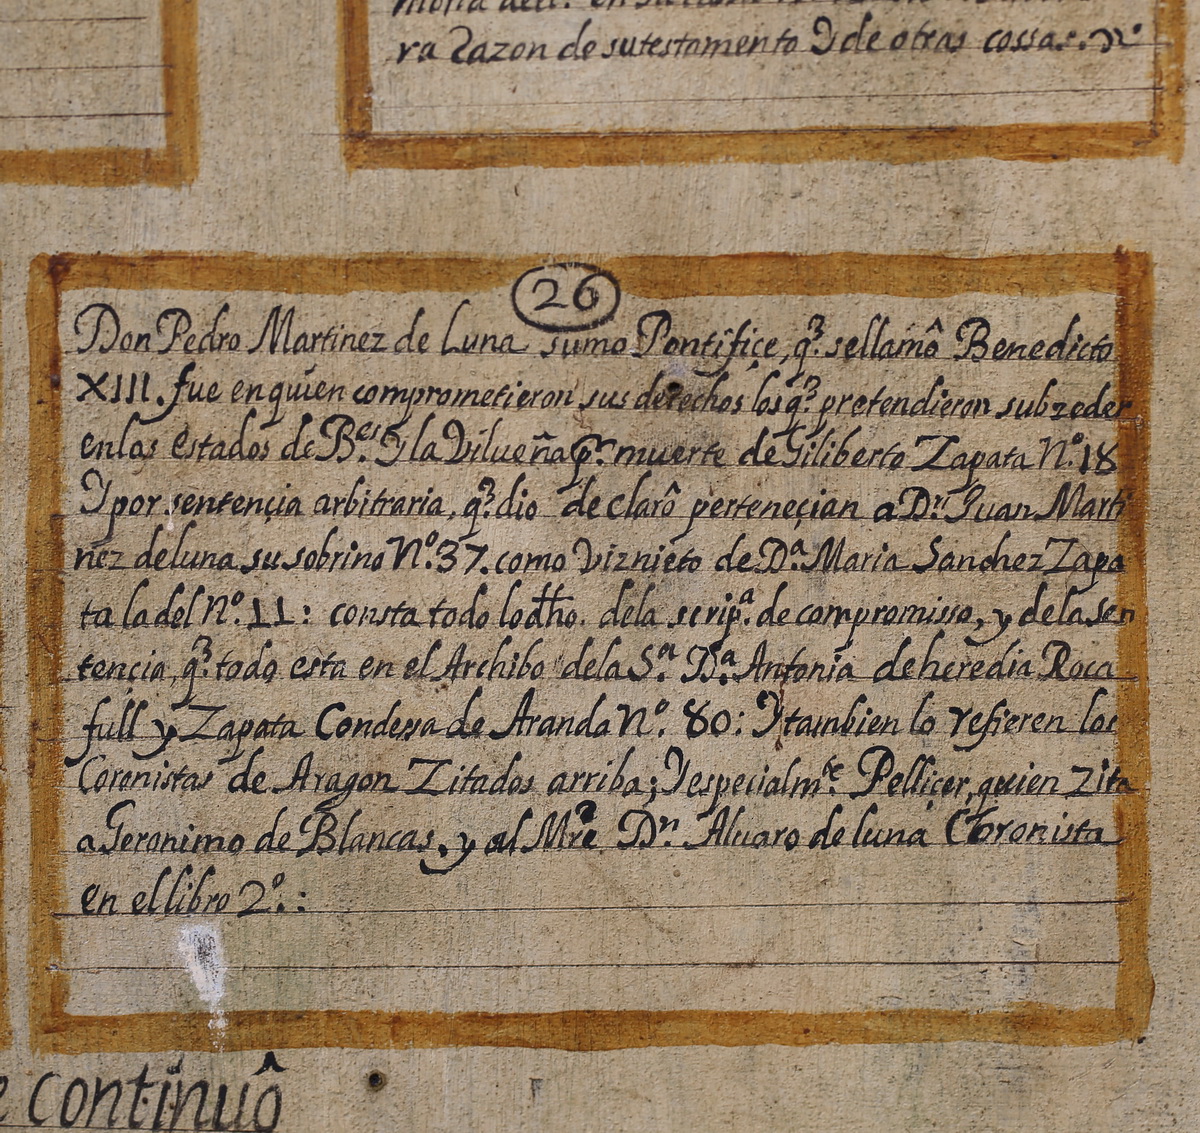 ra Razon de su testamento Y de otras cossas. nº
26
Don Pedro Martinez de Luna sumo Pontifiçe, q.e sellamô Benedicto
XIII. fue en quien comprometieron sus derechos los q.e pretendieron subzeder
enlos estados de B.es Y la Vilueña p.r muerte de Giliberto Zapata N.º 18
Y por sentençia arbitraria, q.e dio declarô perteneçian a D.n Juan Marti
nez deluna su sobrino N.º 37. como Viznieto de D.ª Maria Sanchez Zapa
ta la del N.º 11: consta todo lo dho. dela scrip.ª de compromisso, y dela sen
tencia, q.e todo esta en el Archibo dela S.ª D.ª Antonia de heredia Roca
full y Zapata Condessa de Aranda Nº. 80: Y tambien lo refieren los
Coronistas de Aragon Zitados arriba; Y especialm.te Pelliçer, quien zita
a Geronimo de Blancas, y al Mre D.n Alvaro de luna Choronista
en el libro 2º.:
e continuô